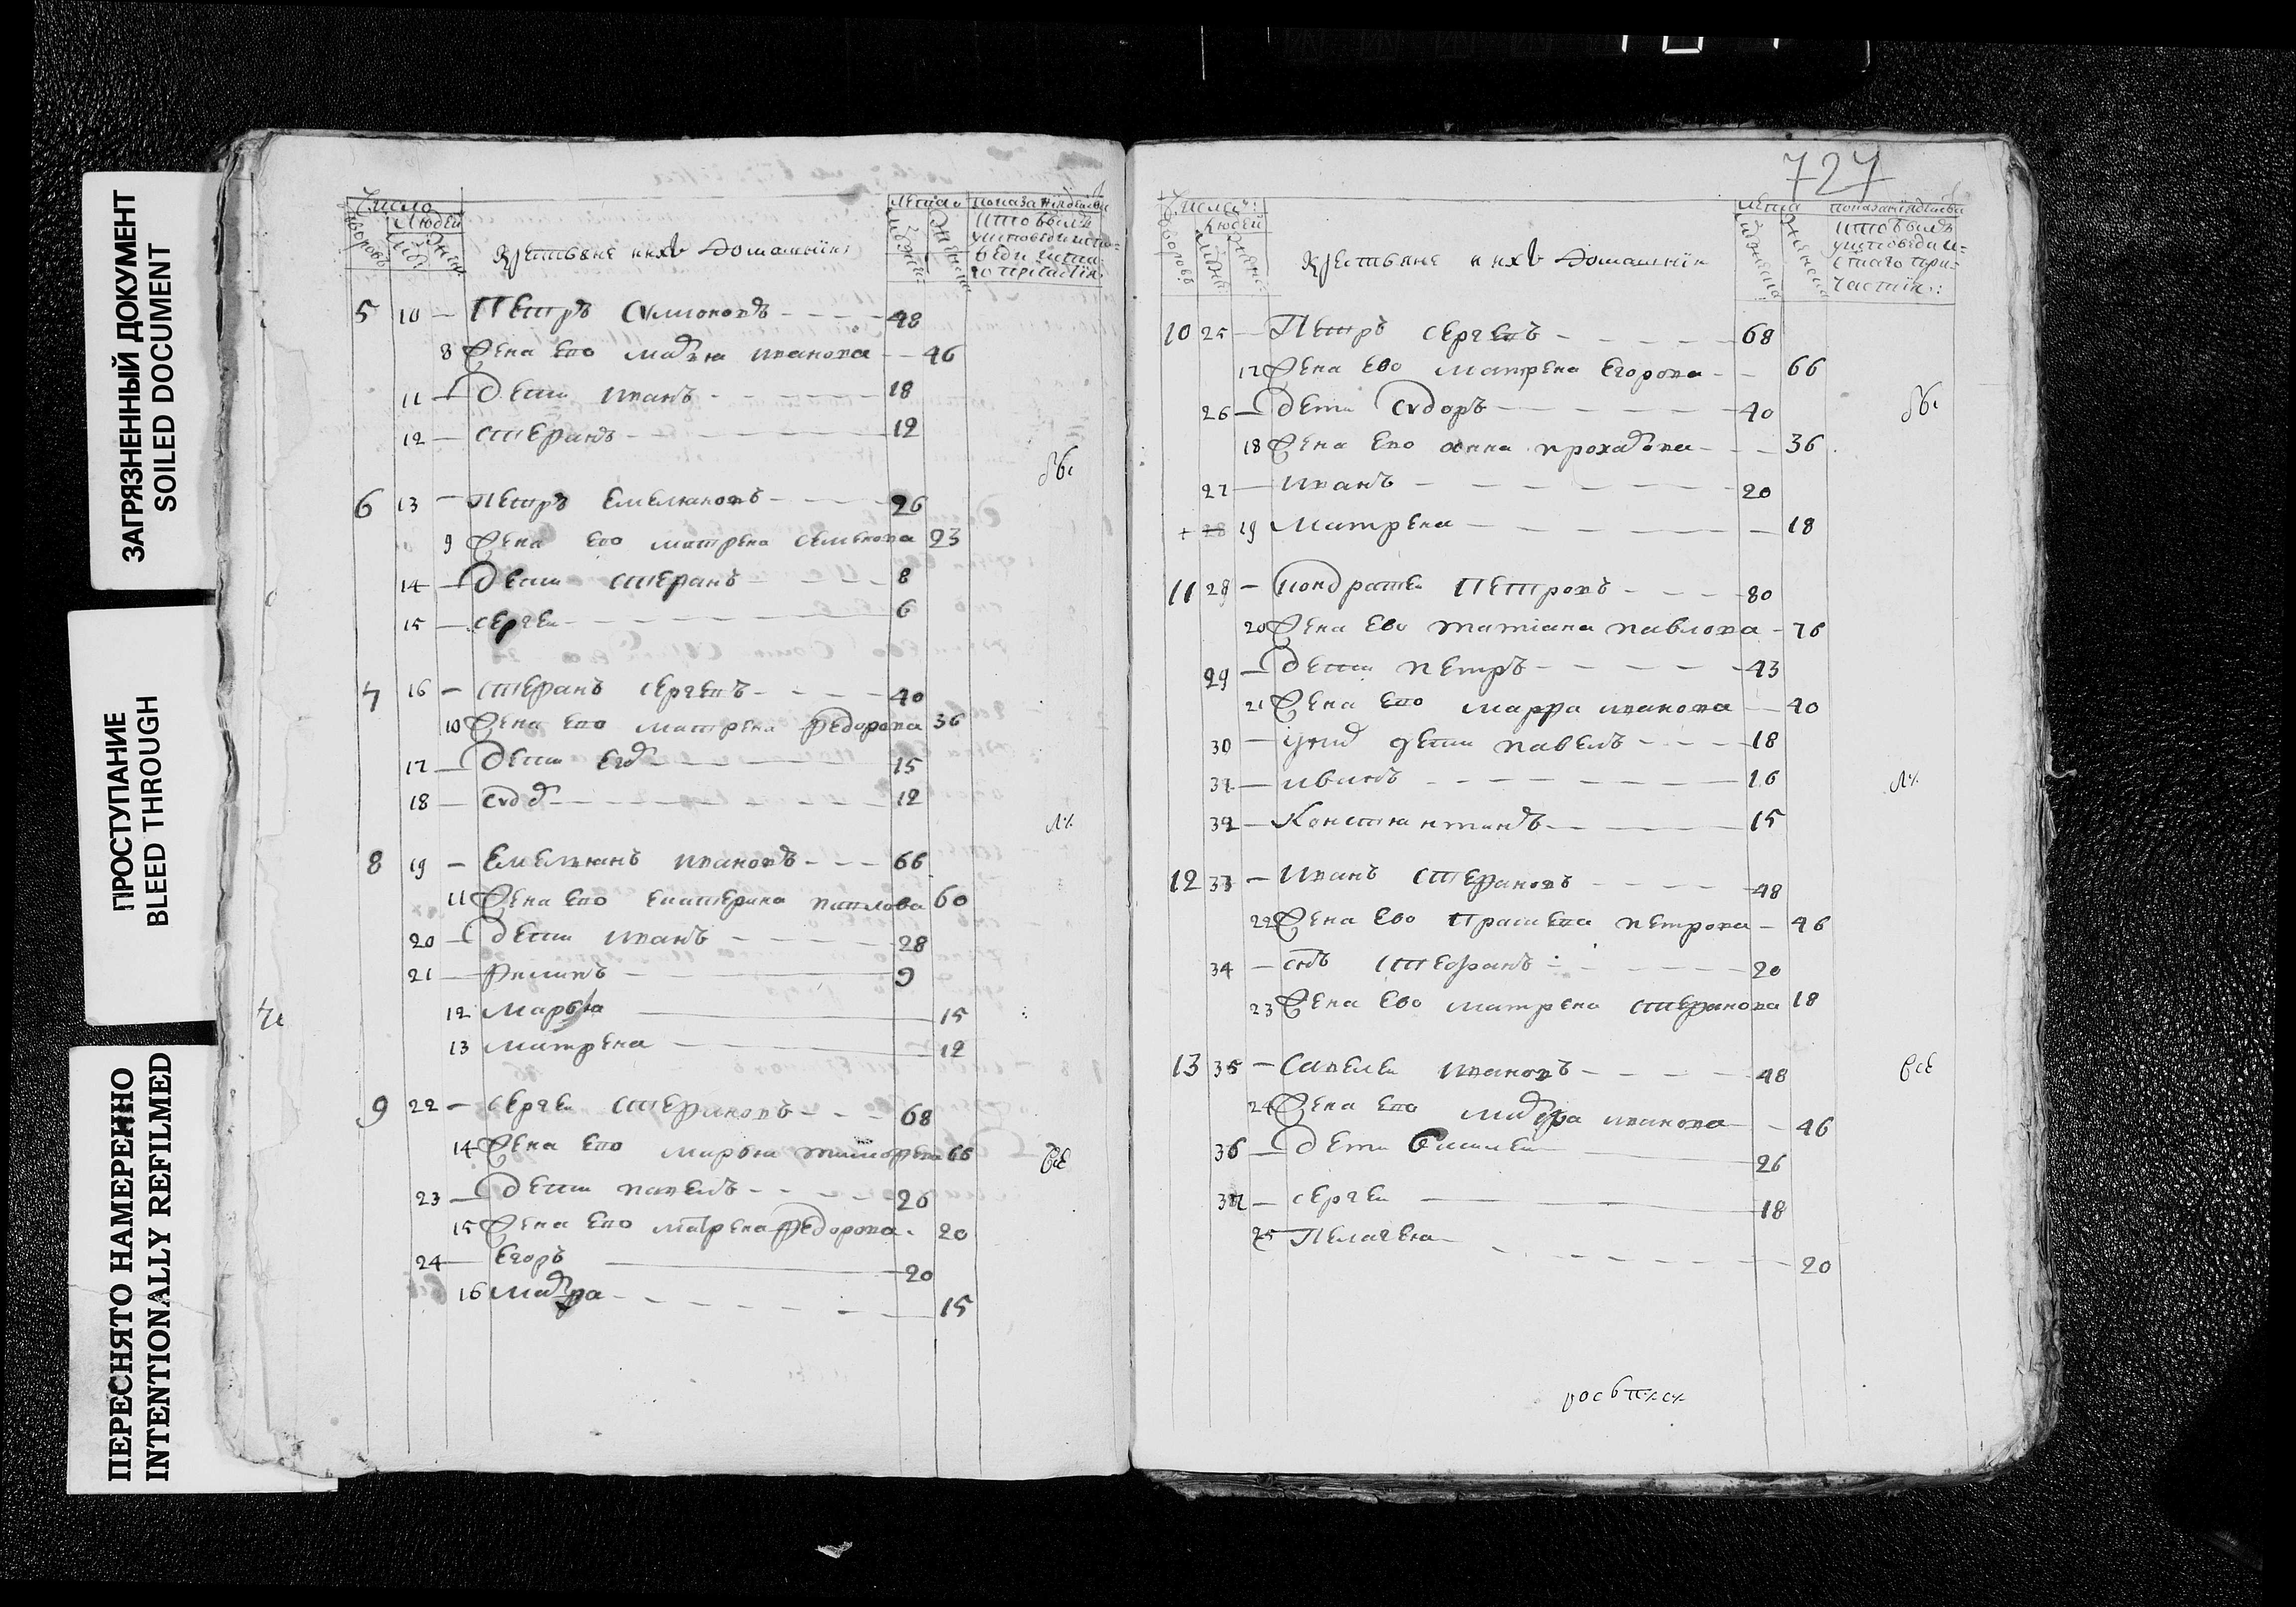 ЗАГРЯЗНЕННЫЙ ДОКУМЕНТ
SOILED DOCUMENT
ПРОСТУПАНИЕ
BLEED THROUGH
ПЕРЕСНЯТО НАМЕРЕННО
INTENTIONALLY REFILMED
Число
Людей
лета
дворовъ
крестьяне и ихъ домашнии
5 10 — Петръ Симоновъ 48
8 Жена ево Мавра иванова 46
11 — дети иванъ 18
12 — стефанъ 12
6 13 — петръ Емельяновъ 26
9 Жена ево матрена семенова 23
14 — дети стефанъ 8
15 — сергеи 6
7 16 — стефанъ сергеевъ 40
10 Жена ево матрена федорова 36
17 — дети Егоръ 15
18 — сидоръ 12
8 19 — Емельянъ ивановъ 66
11 Жена ево екатерина павлова 60
20 — дети иванъ 28
21 — филипъ 9
12 Марья 15
13 матрена 12
9 22 — сергеи стефановъ 68
14 Жена ево марья тимофеева 66
все
23 — дети павелъ 26
15 Жена ево матрена федорова 20
24 — Егоръ 20
16 Мавра 15
727
Числа
Людей
лета
крестьяне и ихъ домашнии
10 25 — Петръ сергеевъ 68
17 Жена ево матрена Егорова 66
26 — дети сидоръ 40
18 Жена ево анна 36
27 — иванъ 20
19 Матрена 18
11 28 — кондратеи Петровъ 80
20 Жена ево татиана павлова 76
29 — дети петръ 43
21 Жена ево марфа иванова 40
30 — у них дети павелъ 18
31 — иванъ 16
32 — Константинъ 15
12 33 — иванъ стефановъ 48
22 Жена ево праскева петрова 46
34 — снъ стефанъ 20
23 Жена ево матрена стефанова 18
13 35 — Савелеи ивановъ 48
все
24 Жена ево мавра иванова 46
36 — дети василеи 26
37 — сергеи 18
25 Пелагея 20